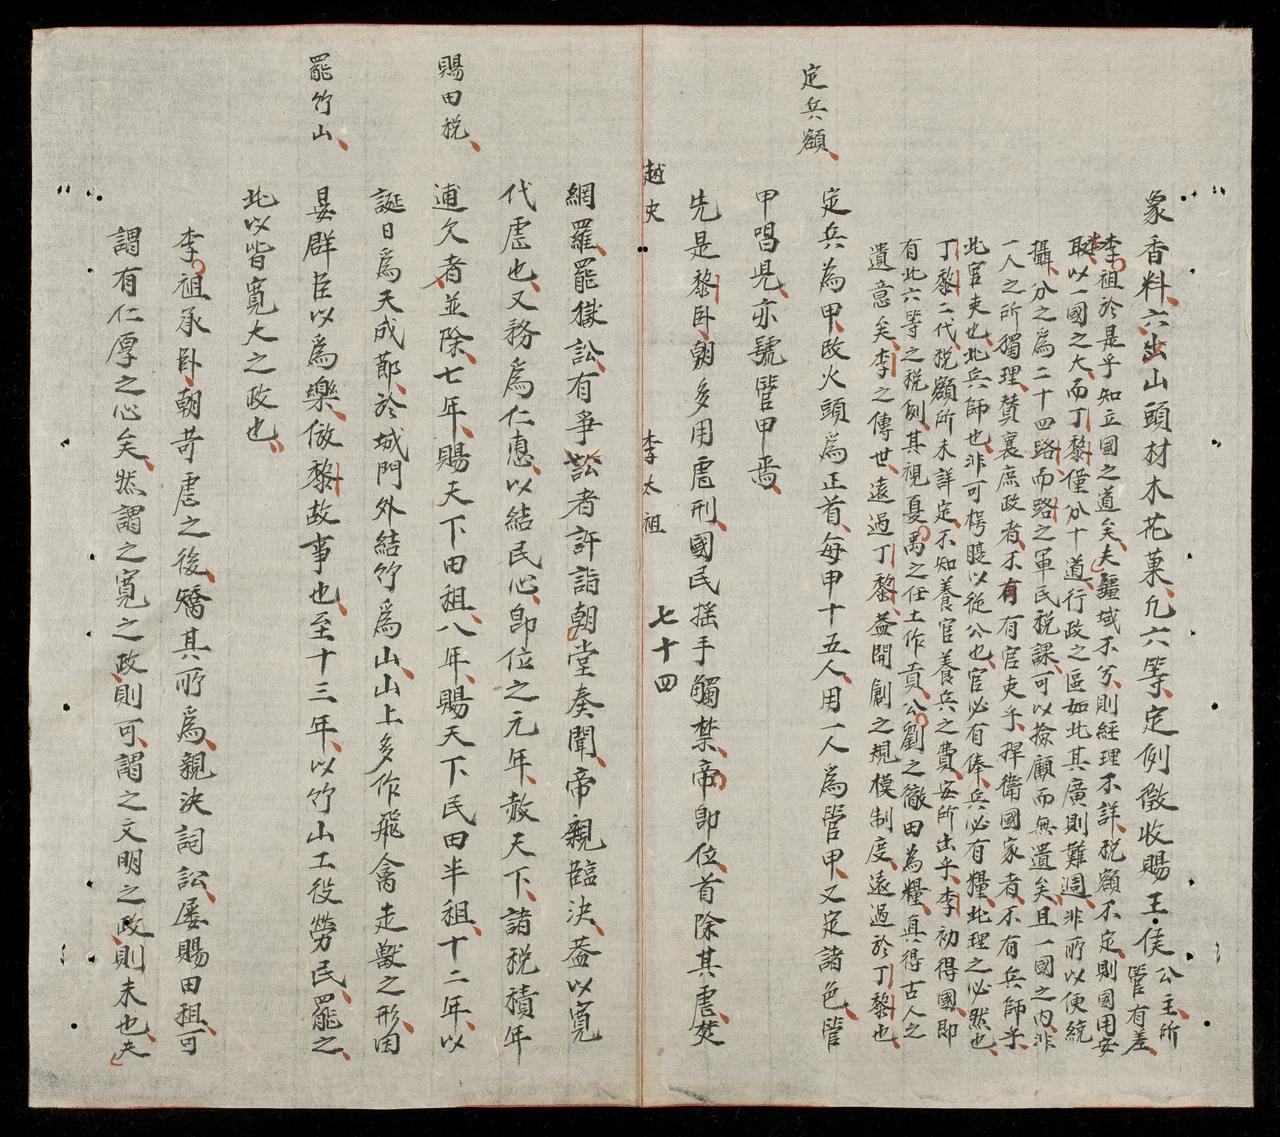 象香料六出山頭材木花菓凡六等定例徵收賜王侯公主所管有差
李祖於是乎知立國之道矣夫疆域不分則經理不詳税額不定則國用安
取以一國之大而丁黎僅分十道行政之區如此其廣則難週非所以便統
攝分之為二十四路而路之軍民税課可以撿顧而無遺矣且一國之内非
一人之所獨理賛襄庶政者不有官吏乎捍衛國家者不有兵師乎
此官吏也此兵師也非可枵腹以從公也官必有俸兵必有糧此理之必然也
丁黎二代税額所未詳定不知養官養兵之費安所出乎李初得國即
有此六等之税例其視夏禹之任土作貢公劉之徹田為糧真得古人之
遺意矣李之傳世遠過丁黎蓋開創之規模制度遠過於丁黎也
定兵額
定兵為甲改火頭為正首每甲十五人用一人爲管甲又定諸色管
甲唱兒亦號管甲焉
先是黎卧朝多用虐刑國民摇手觸禁帝即位首除其虐焚
越史 李太祖 七十四
網羅罷獄訟有爭訟者許詣朝堂奏聞帝親臨决蓋以寬
代虐也又務爲仁惠以結民心即位之元年赦天下諸税積年
賜田税
逋欠者並除七年賜天下田租八年賜天下民田半租十二年以
誕日爲天成節於城門外結竹爲山山上多作飛禽走獸之形因
罷竹山
宴群臣以爲樂倣黎故事也至十三年以竹山工役勞民罷之
此以皆寬大之政也
李祖承卧朝苛虐之後矯其所爲親決詞訟屡賜田租可
謂有仁厚之心矣然謂之寛之政則可謂之文明之政則未也夫